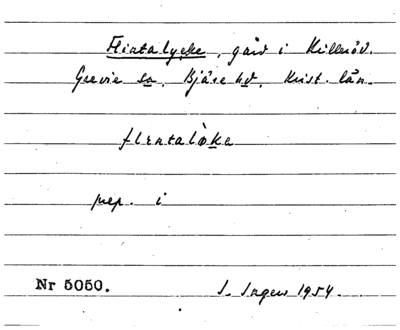 Flintalycke, gård i Killeröd.
Grevie sn, Bjäre hd, Krist. län.
flentaløka
prep. i
Nr 5050.
S. Ingers 1954.